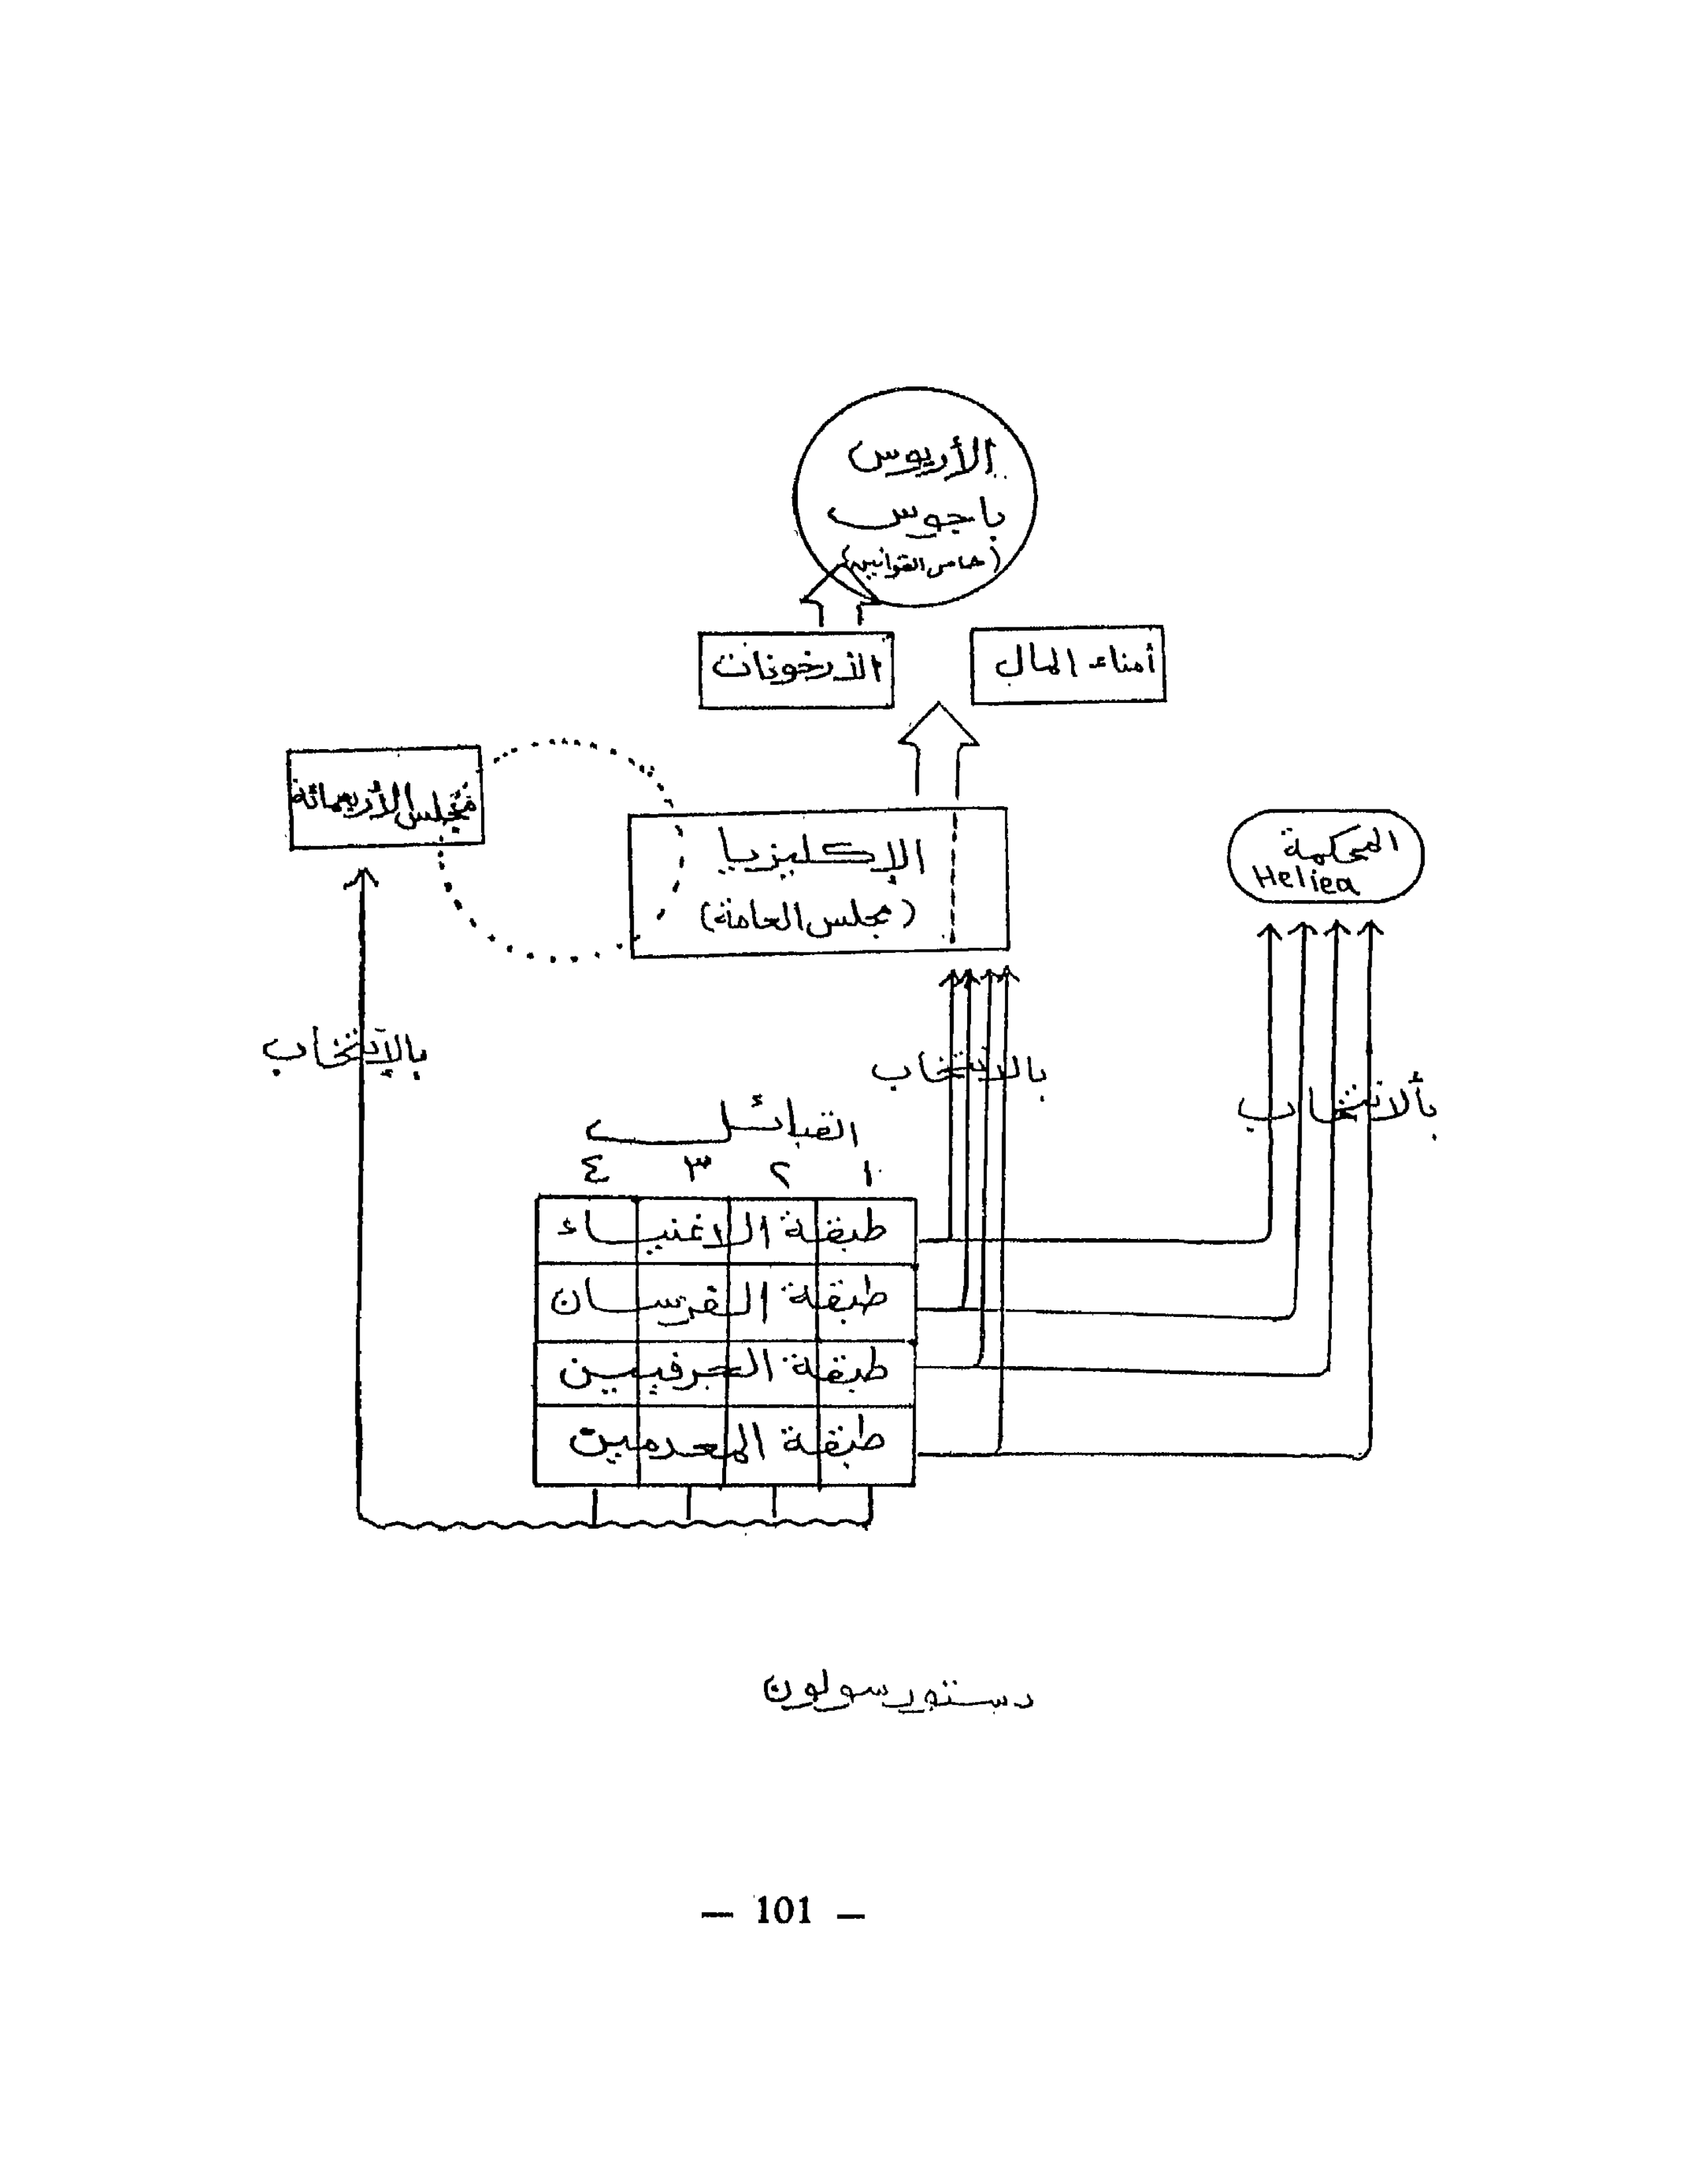 الأريوس
باجوس
(حامى القوانين)
الأرخونات
أمناء المال
مجلس الأربعمائة
الإكليزيا
(مجلس العامة)
المحكمة
Heliea
بالإنتخاب
بالانتخاب
بألانتخاب
القبائل
١ ٢ ٣ ٤
طبقة الاغنياء
طبقة الفرسان
طبقة الحرفيين
طبقة المعدمين
دستور سولون
— 101 —